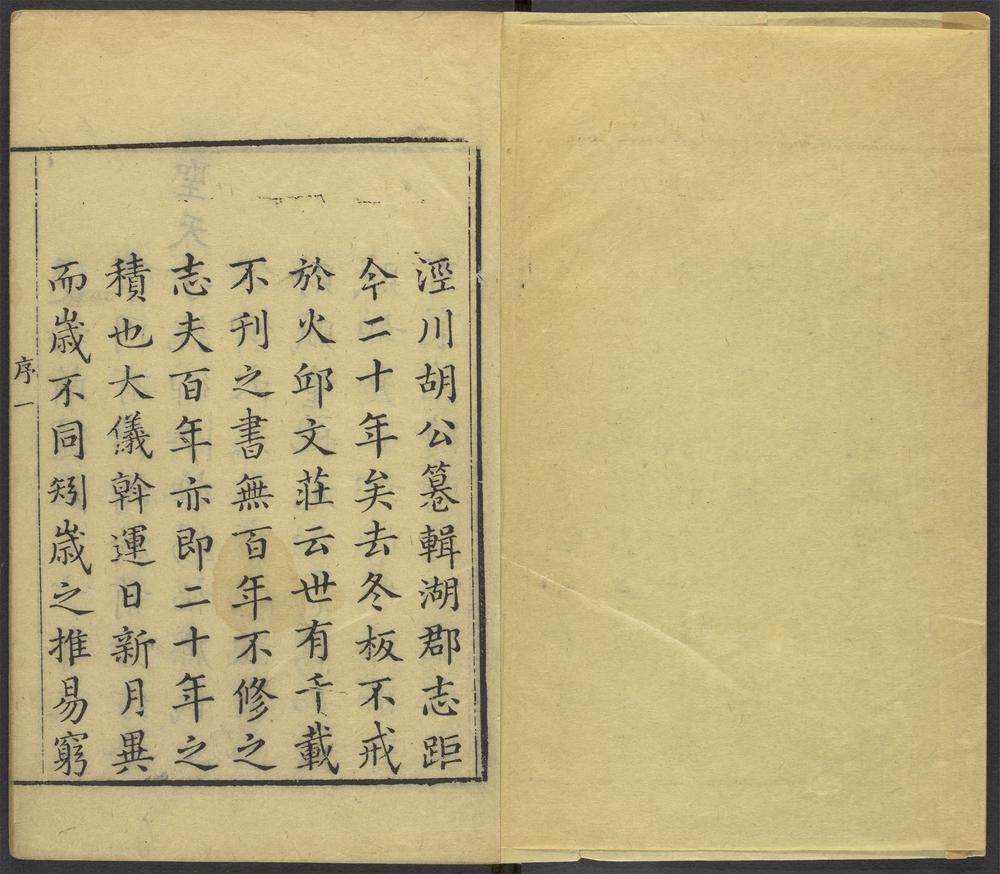 涇川胡公纂輯湖郡志距
今二十年矣去冬板不戒
於火邱文荘云世有千載
不刋之書無百年不修之
志夫百年亦即二十年之
積也大儀斡運日新月異
而歳不同矧歳之推易窮
序一